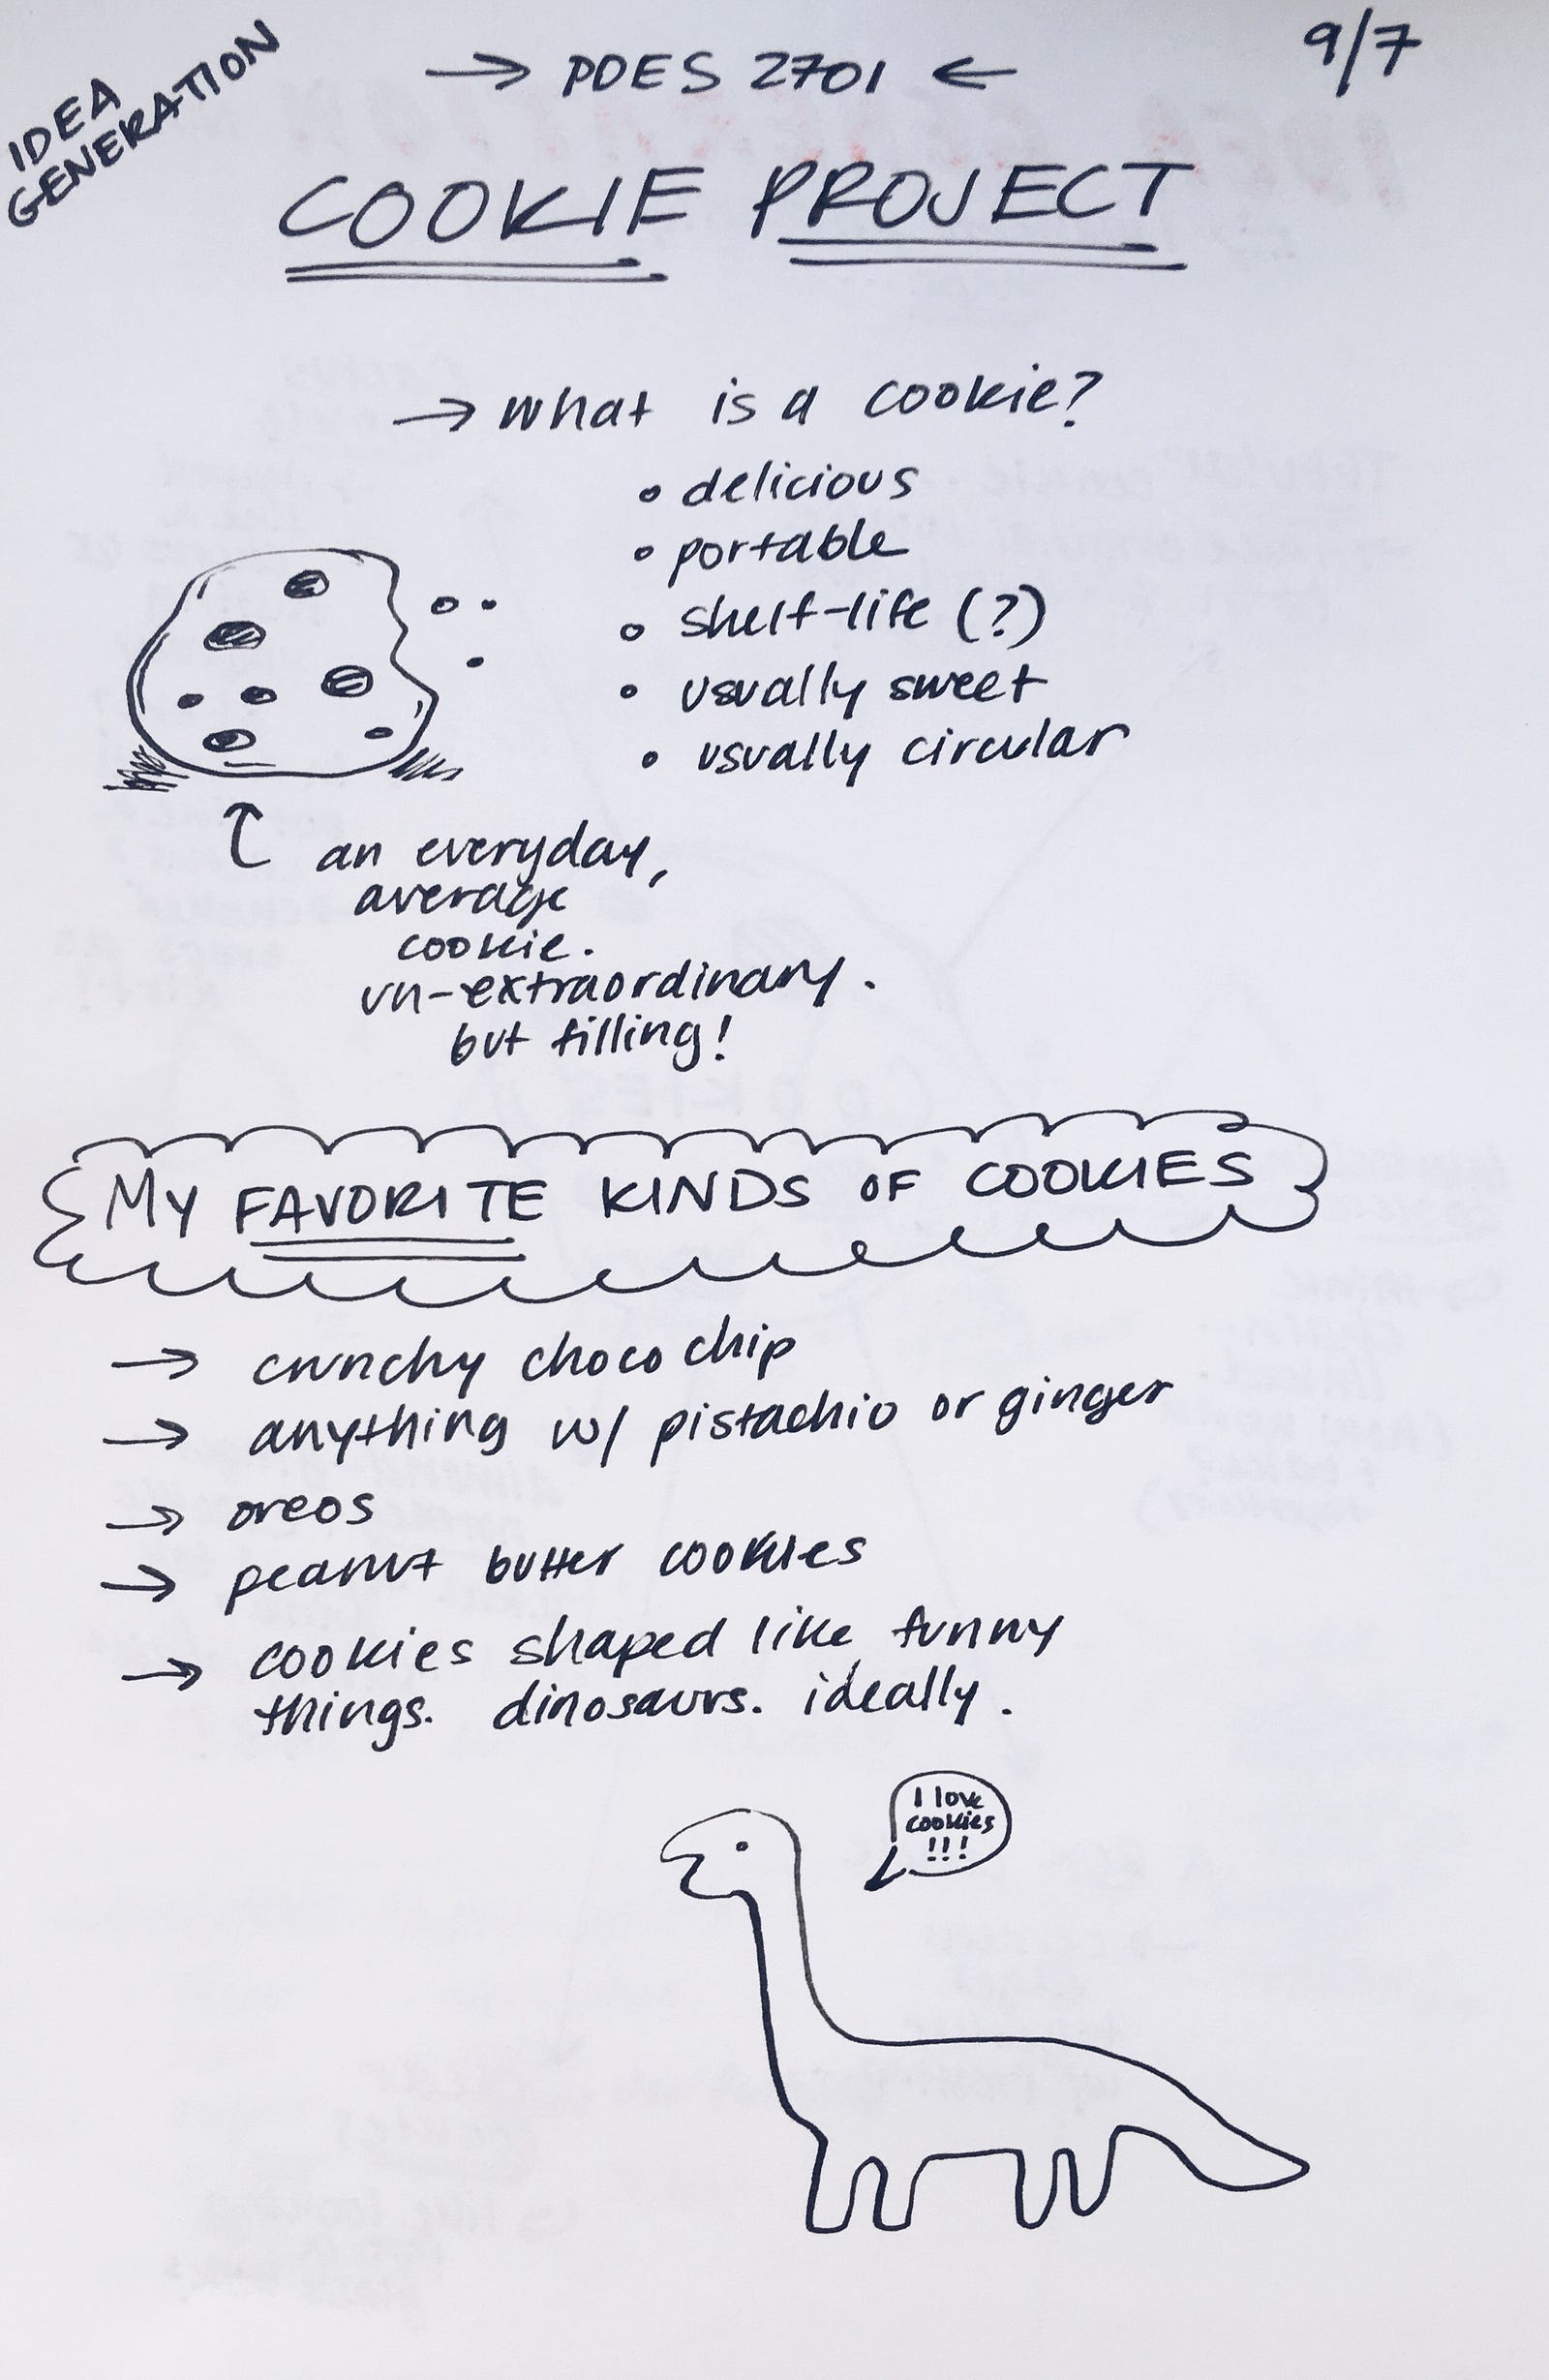 IDEA
GENERATION
→ PDES 2701 ←
9/7
COOKIE PROJECT
→ what is a cookie?
• delicious
• portable
• shelf-life (?)
• usually sweet
• usually circular
an everyday,
average
cookie.
un-extraordinary.
but filling!
MY FAVORITE KINDS OF COOKIES
→ crunchy choco chip
→ anything w/ pistachio or ginger
→ oreos
→ peanut butter cookies
→ cookies shaped like funny
things. dinosaurs. ideally.
I love
cookies
!!!